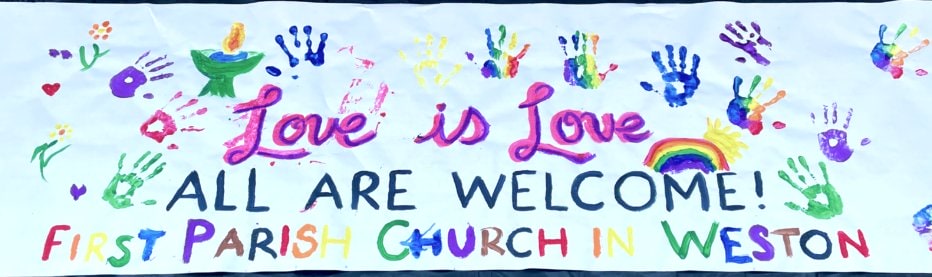 Love is Love
ALL ARE WELCOME!
FIRST PARISH CHURCH IN WESTON